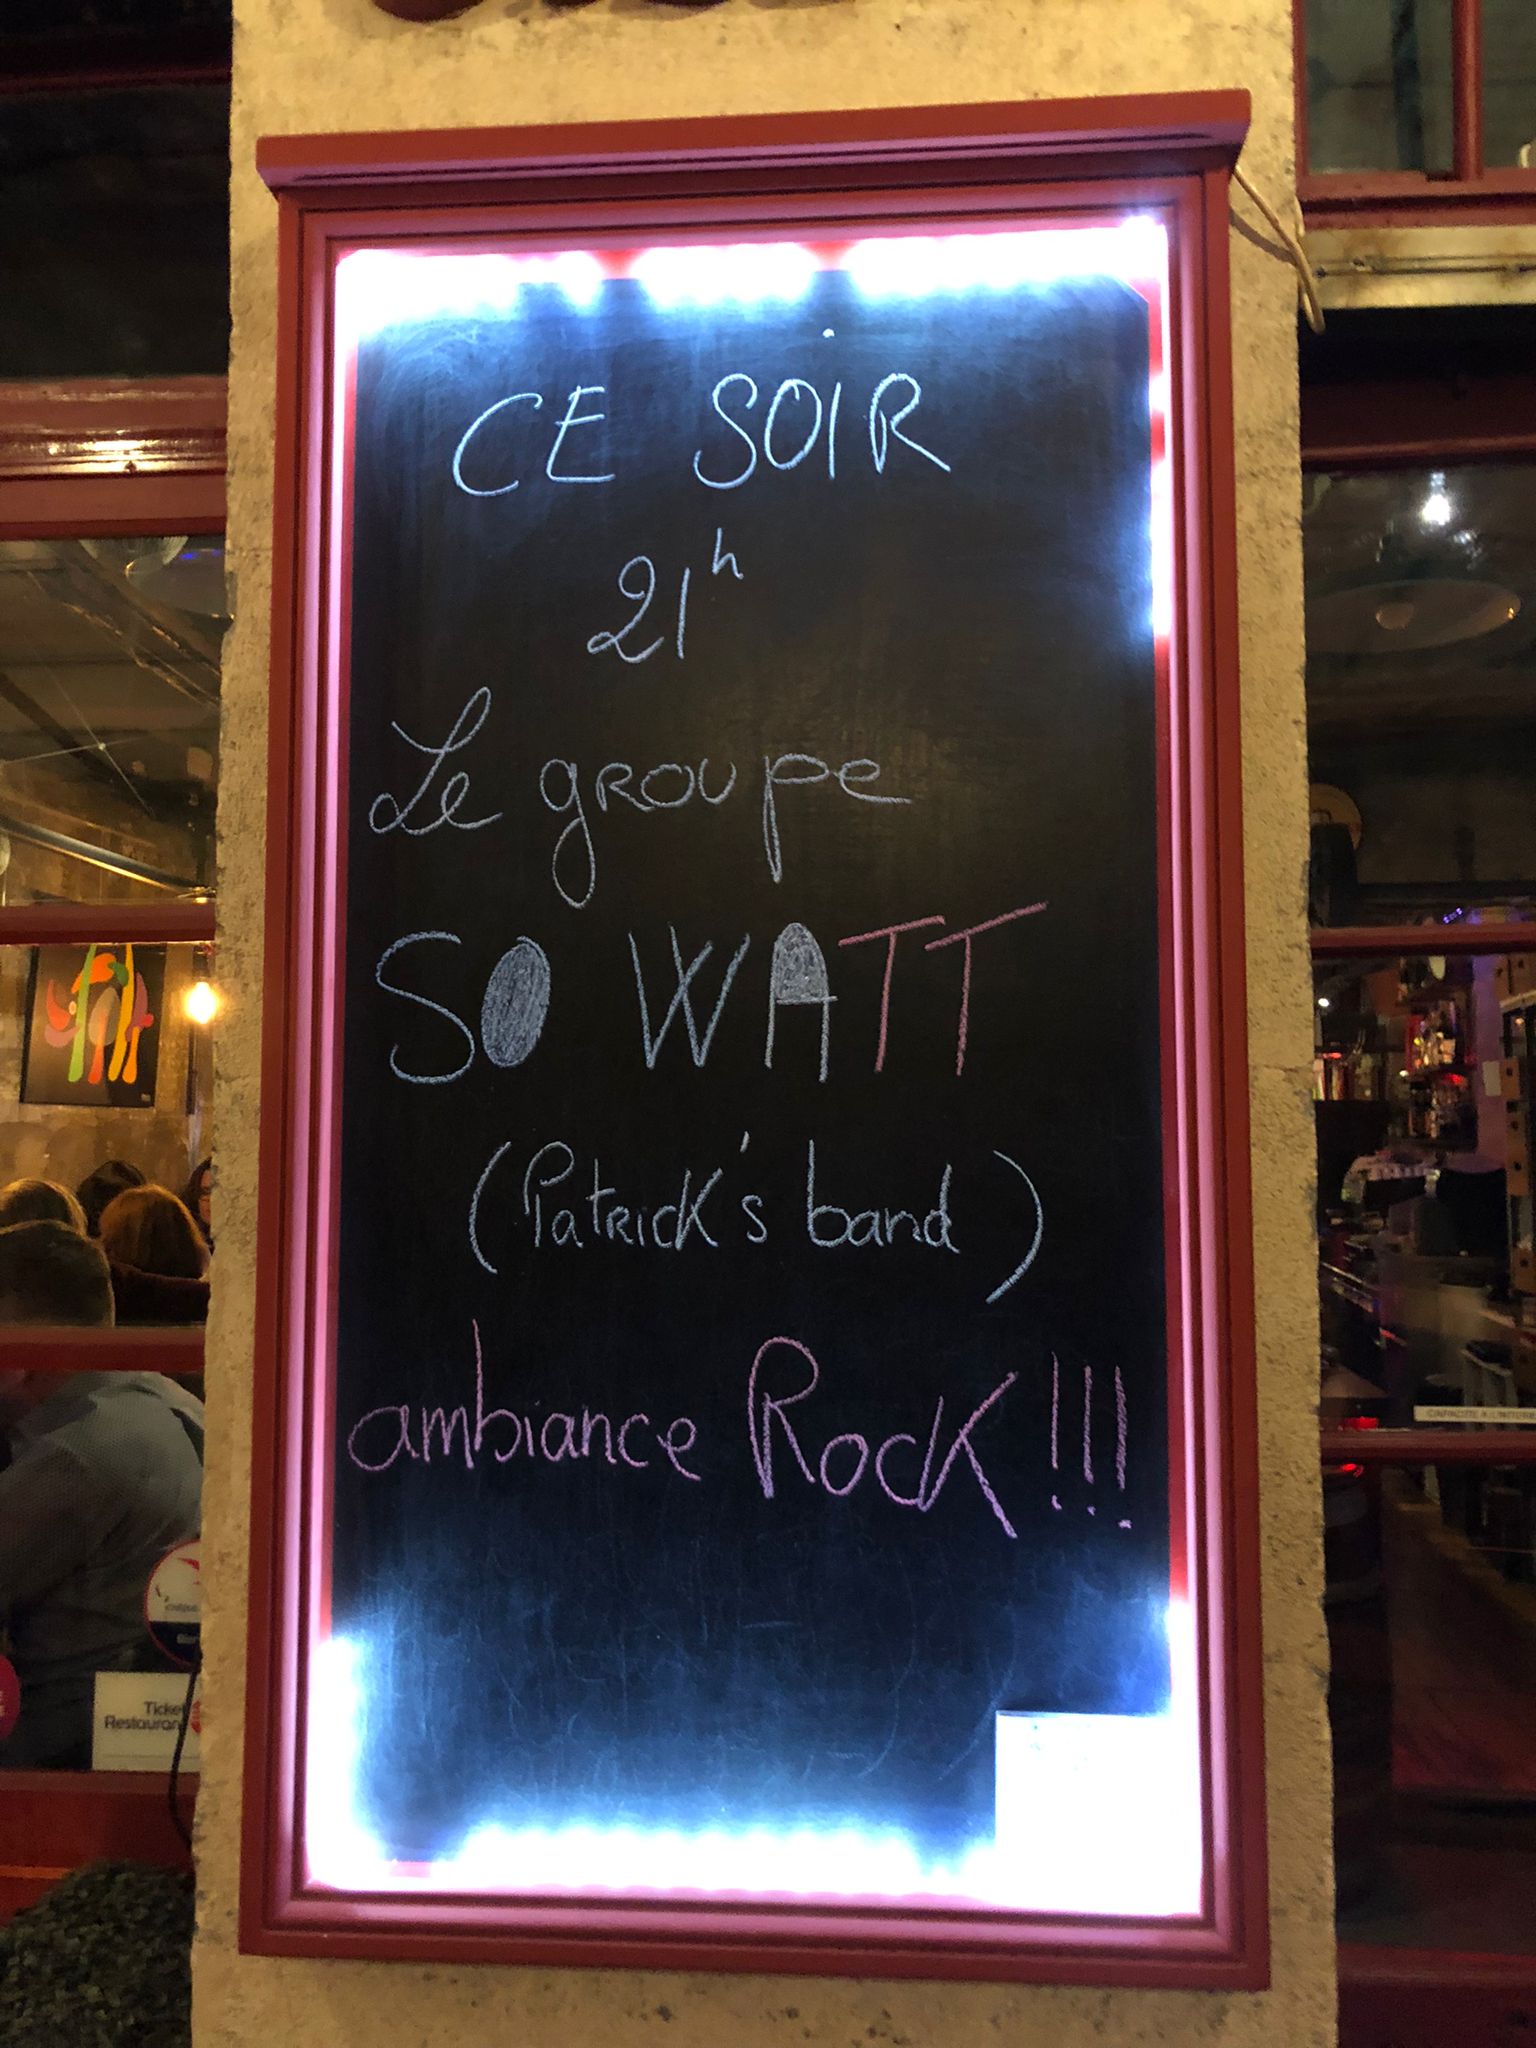 CE SOIR
21h
Le groupe
SO WATT
(Patrick's band)
ambiance Rock!!!
Ticket
Restaurant
CAPACITE A L'INTER